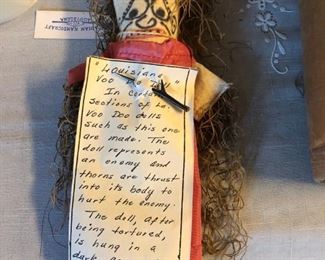 INDIAN HANDICRAFT
LOUISIANA
"Louisiana
Voo Doo Doll"
In certain
sections of La.
Voo Doo dolls
such as this one
are made. The
doll represents
an enemy and
thorns are thrust
into its body to
hurt the enemy.
The doll, after
being tortured,
is hung in a
dark